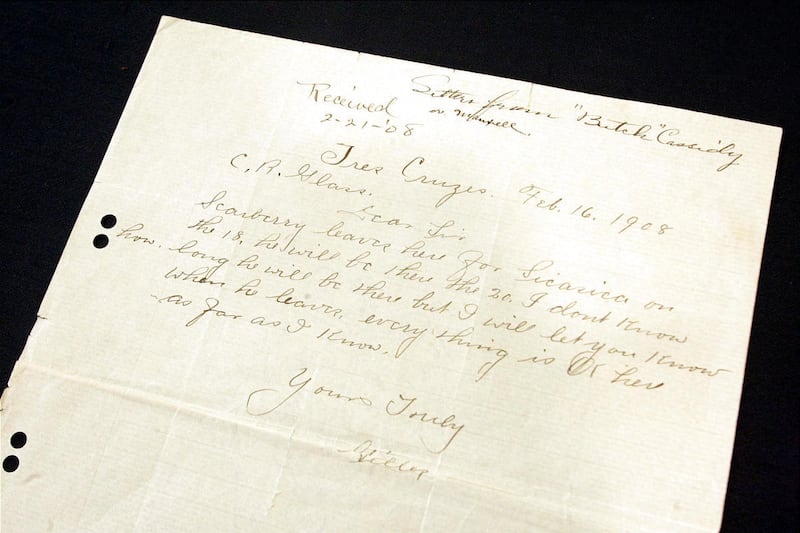 Letter from "Butch" Cassidy
or Maxwell.
Received
2-21-'08
Tres Cruzes. Feb. 16. 1908
C. R. Glass.
Dear Sir
Scarberry leaves here for Sicasica on
the 18, he will be there the 20. I dont know
how. long he will be there but I will let you know
when he leaves, every thing is OK her
as far as I know.
Yours Truly